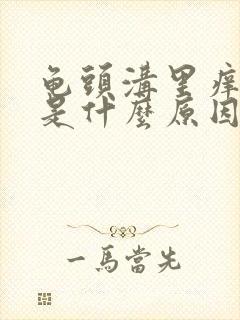 龜頭溝里痒
是什麼原因
一馬當先